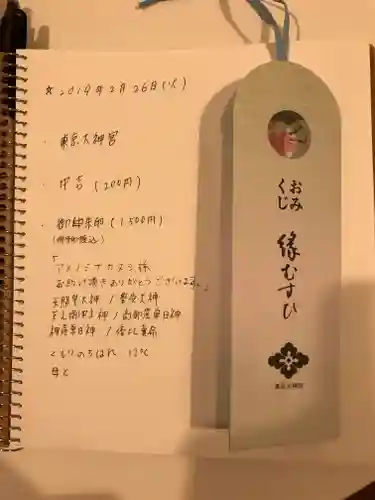 ☆2019年2月26日(火)
・東京大神宮
・中吉(200円)
・御朱印(1,500円)
「
アメノミナカヌシ様
お助け頂きありがとうございます。」
天照皇大神 / 豊受大神
神産巣日神 / 倭比賣命
くもりのちはれ 13℃
母と
おみ
くじ
縁むすび
東京大神宮